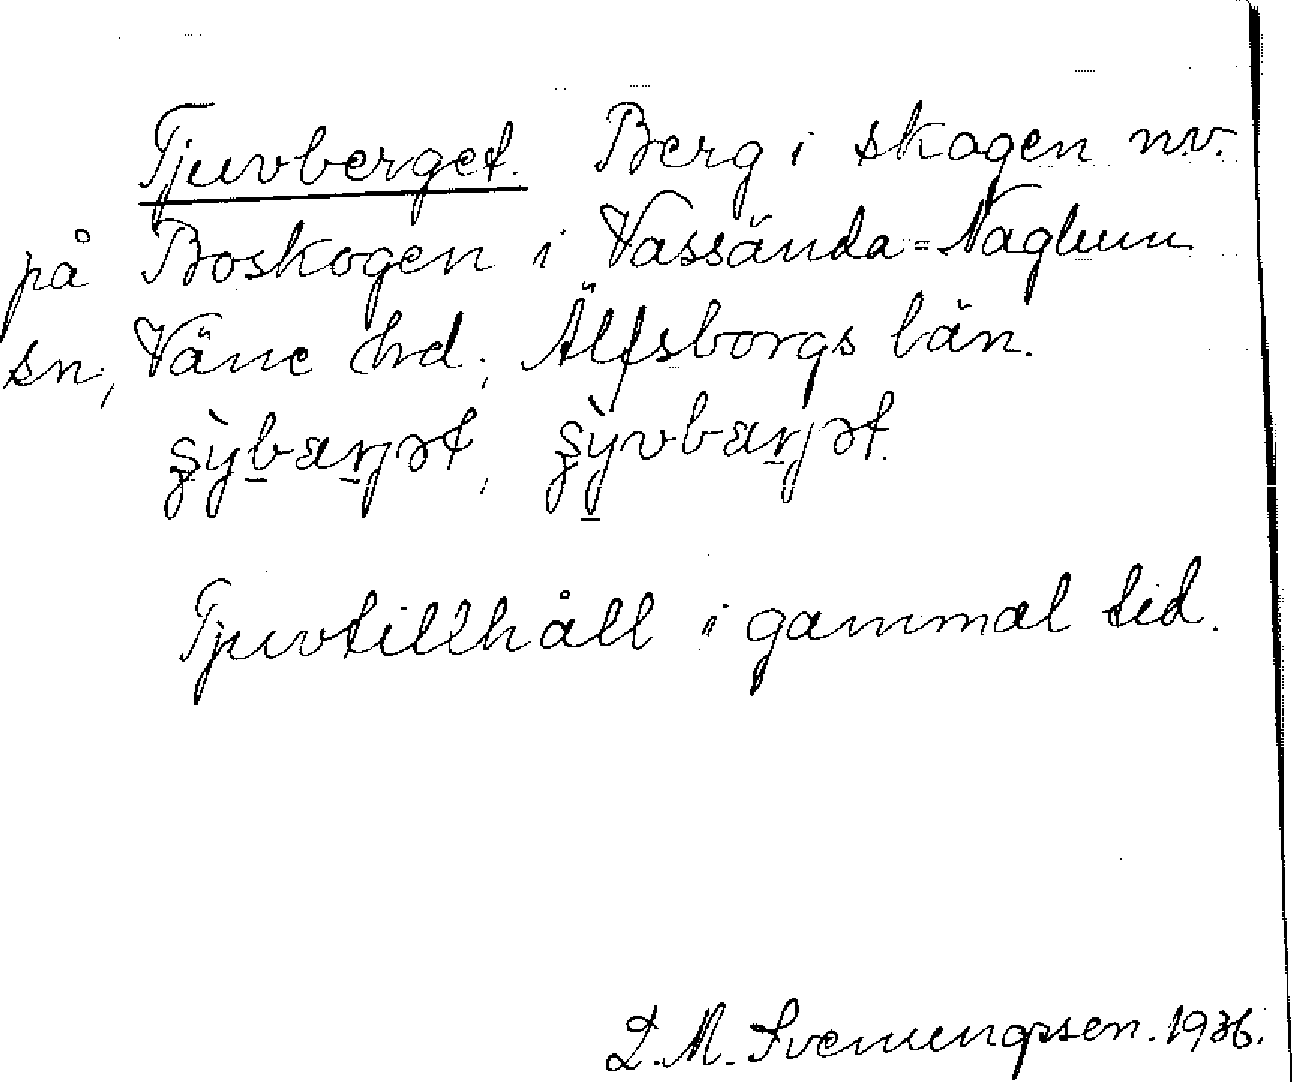 Tjuvberget. Berg i skogen nv.
på Boskogen i Vassända-Naglum
sn, Väne hd, Älfsborgs län.
Tjuvtillhåll i gammal tid.
L. M. Svenungsson. 1936.